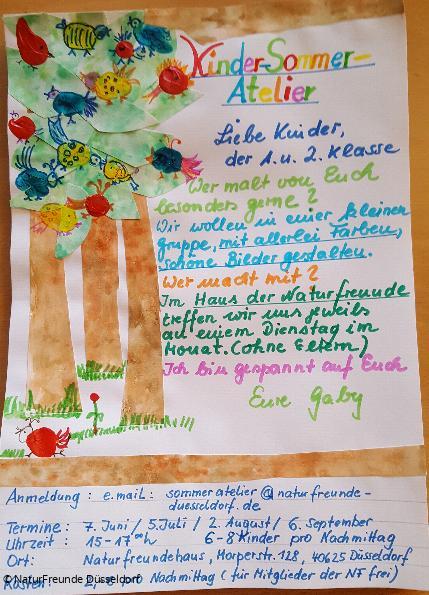 Kinder-Sommer-
Atelier
Liebe Kinder,
der 1. u. 2. Klasse
Wer malt von Euch
besonders gerne?
Wir wollen in einer kleinen
gruppe, mit allerlei Farben,
schöne Bilder gestalten.
Wer macht mit?
Im Haus der Naturfreunde
treffen wir uns jeweils
an einem Dienstag im
Monat. (ohne Eltern)
Ich bin gespannt auf Euch
Eure Gaby
Anmeldung : e.mail: sommeratelier@naturfreunde-
duesseldorf.de
Termine : 7. Juni / 5. Juli / 2. August / 6. September
Uhrzeit : 15-17⁰⁰h 6-8 Kinder pro Nachmittag
Ort: Naturfreundehaus, Morperstr. 128, 40625 Düsseldorf
Kosten: pro Nachmittag (für Mitglieder der NF frei)
© NaturFreunde Düsseldorf